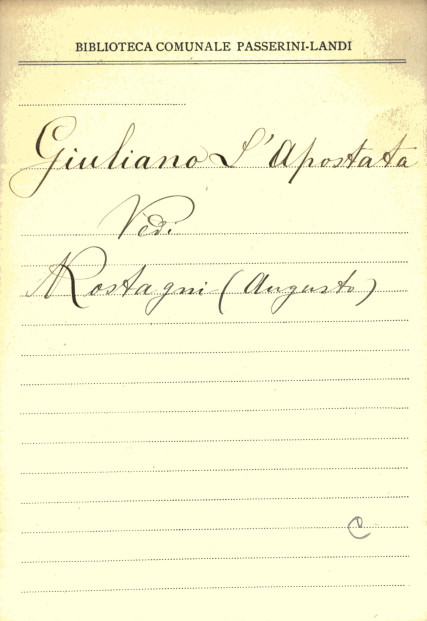 BIBLIOTECA COMUNALE PASSERINI-LANDI
Giuliano L'Apostata
Vedi
Rostagni (Augusto)
C